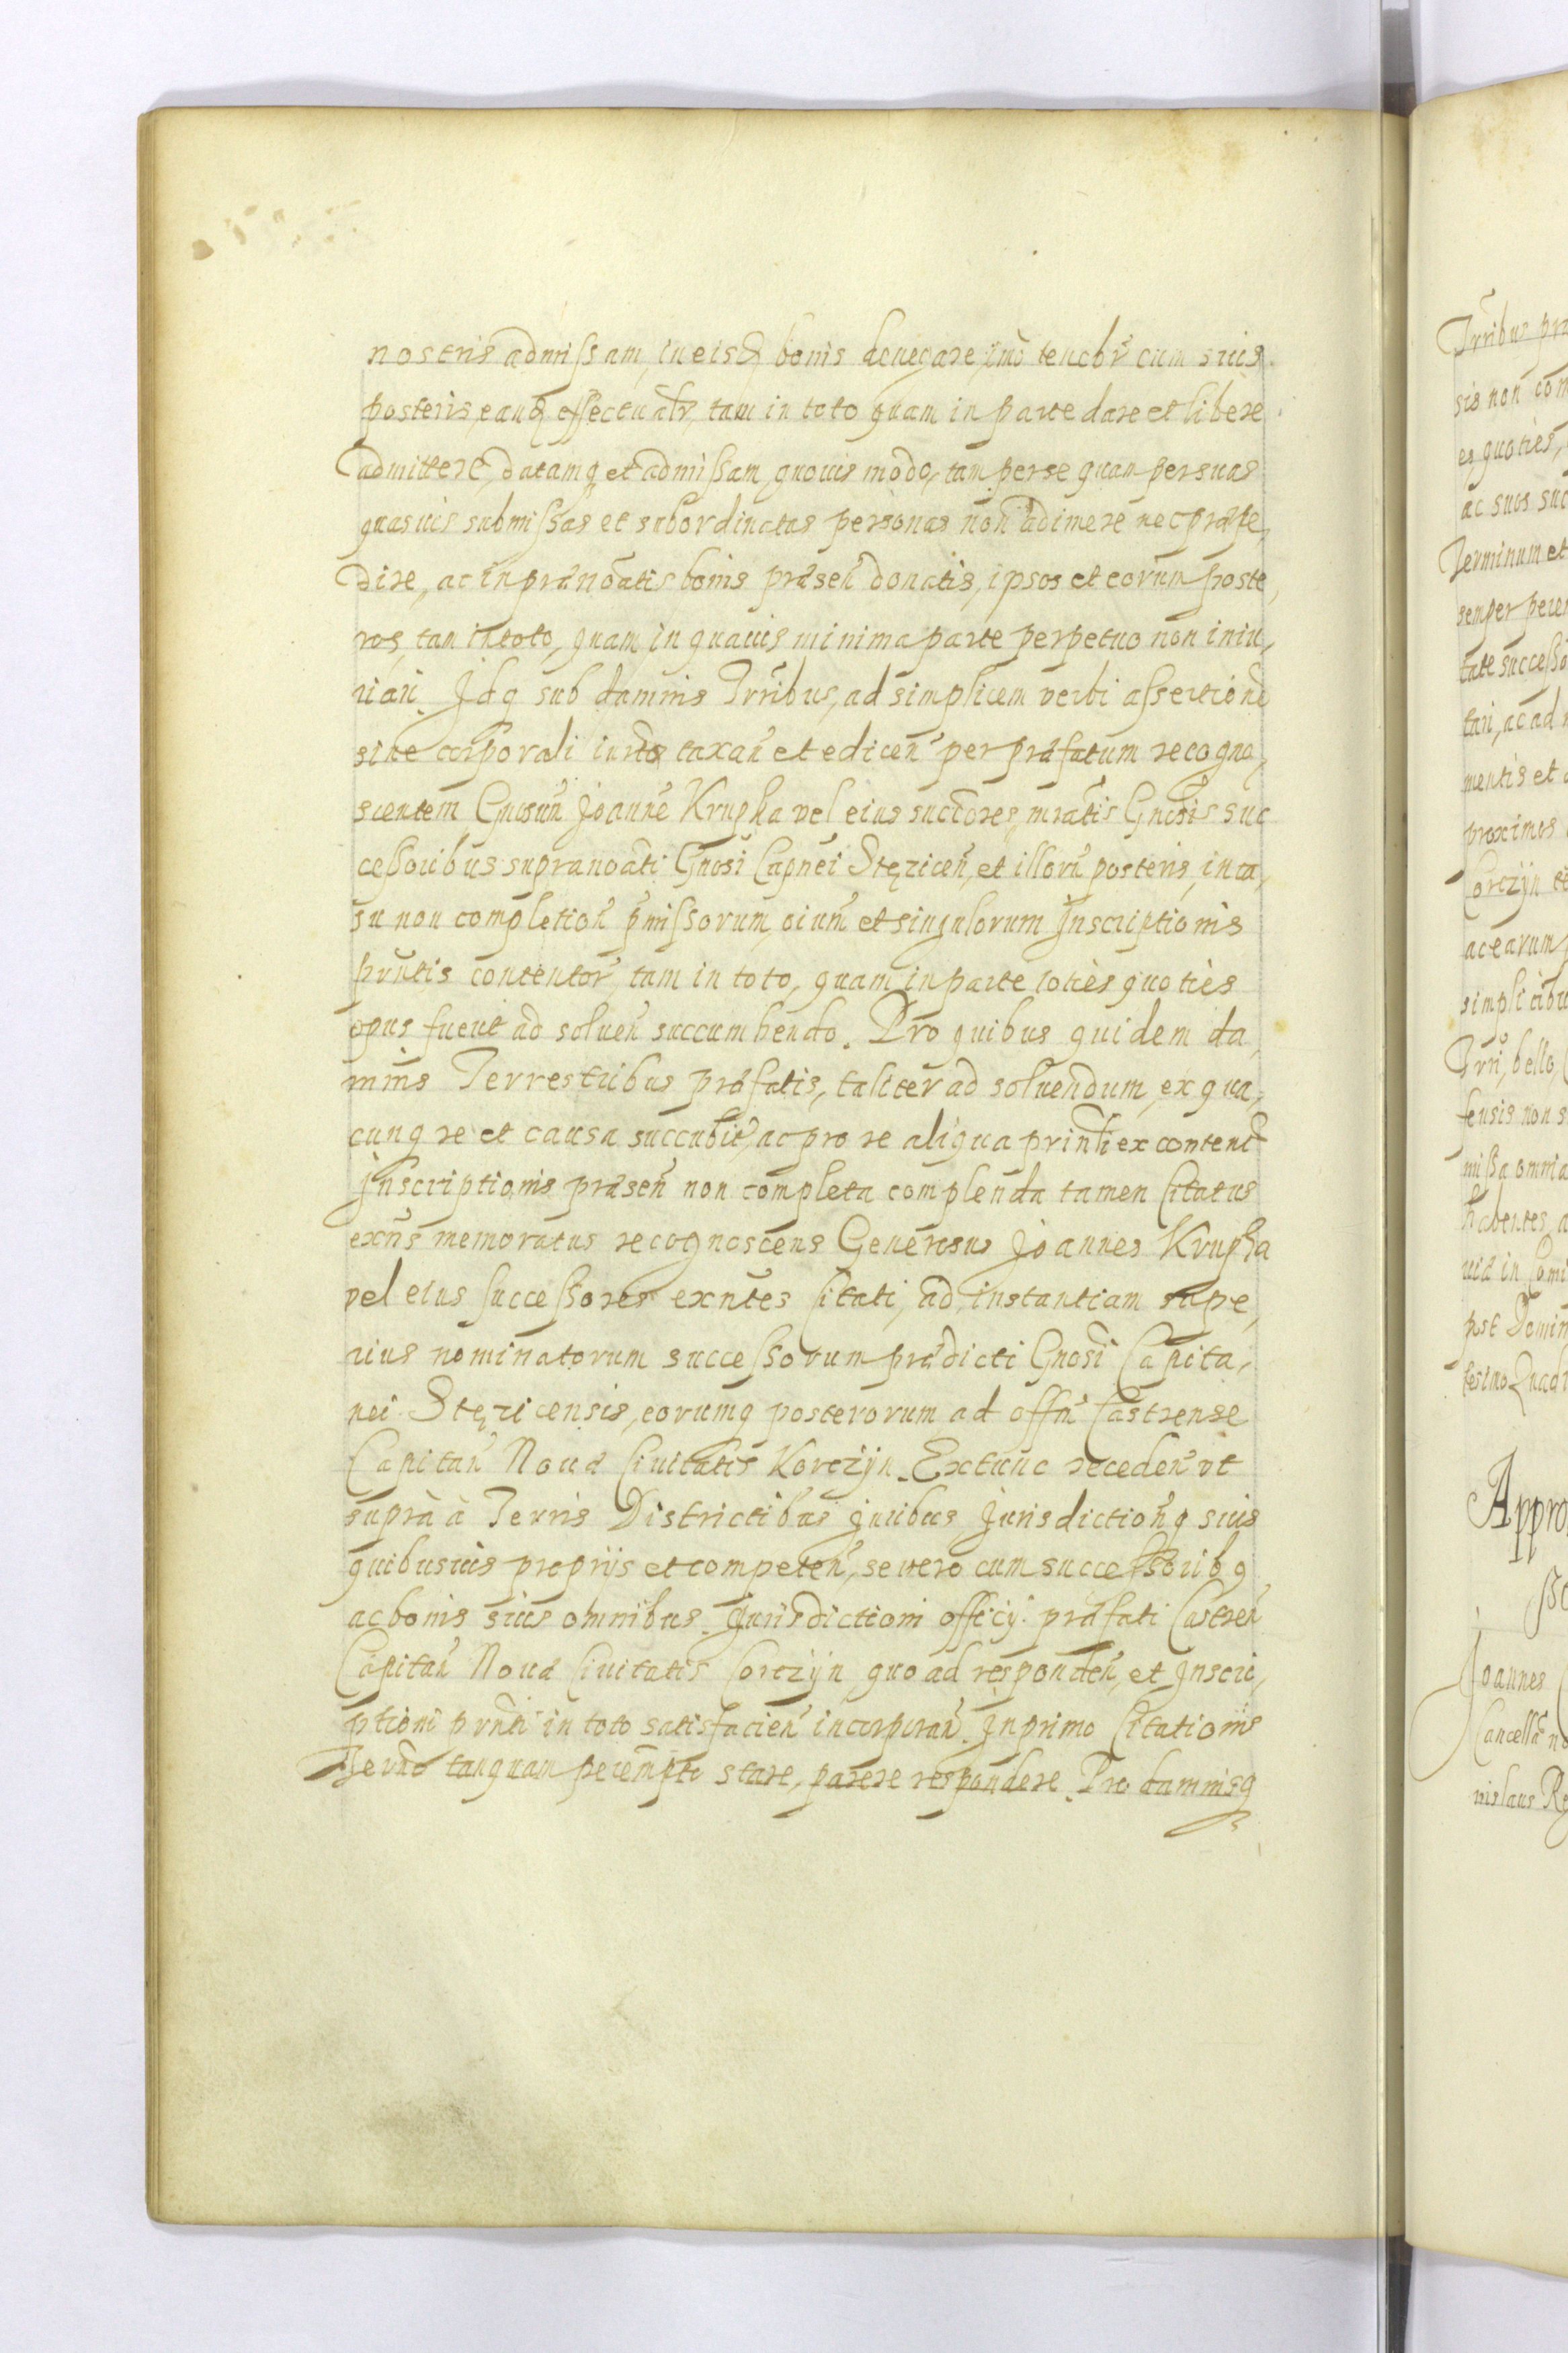 nostris admissam, in eisd bonis denegare, imo tenebr cum suis
posteris, eand effectualr, tam in toto quam in parte dare et libere
admittere, datamq et admissam, quovis modo, tam per se quam per suas
quasvis submissas et subordinatas personas non adimere nec præpe,
dire, ac in prænoatis bonis præsen donatis, ipsos et eorum poste,
ros, tam in toto, quam in quavis minima parte perpetuo non iniu,
riari. Idq sub damnis Trribus, ad simplicem verbi assertione
sine corporali iurto taxan et edicen per præfatum recogno,
scentem Gnosum Joanne Krupka vel eius succores, mratis Gnosis suc
cessoribus supranoati Gnosi Capnei Stęzicen, et illoru posteris, in ca,
su non completion pmissorum, oium et singulorum Inscriptionis
prntis contentor, tam in toto, quam in parte toties quoties
opus fuerit ad soluen succumbendo. Pro quibus quidem da,
mnis Terrestribus præfatis, taliter ad soluendum, ex qua,
cunq re et causa succubit, ac pro re aliqua printi ex content
Inscriptionis præsen non completa complenda tamen Citatus
exns memoratus recognoscens Generosus Joannes Krupka
vel eius successores exntes Citati, ad instantiam supe,
rius nominatorum successorum prædicti Gnosi Capita,
nei Stęzicensis, eorumq posterorum ad offm Castrense
Capitan Nouæ Ciuitatis Korczÿn. Extunc receden vt
suprà à Terris Districtibus Juribus Jurisdictionq suis
quibusuis proprijs et competen, se vero cum successorib9
ac bonis suis omnibus. Jurisdictioni officij præfati Castren
Capitan Nouæ Ciuitatis Corczÿn quo ad responden, et Inscri,
ptioni prnti in toto satisfacien incorporan. In primo Citationis
Termo tanquam perempto stare, parere respondere. Pro damnisq